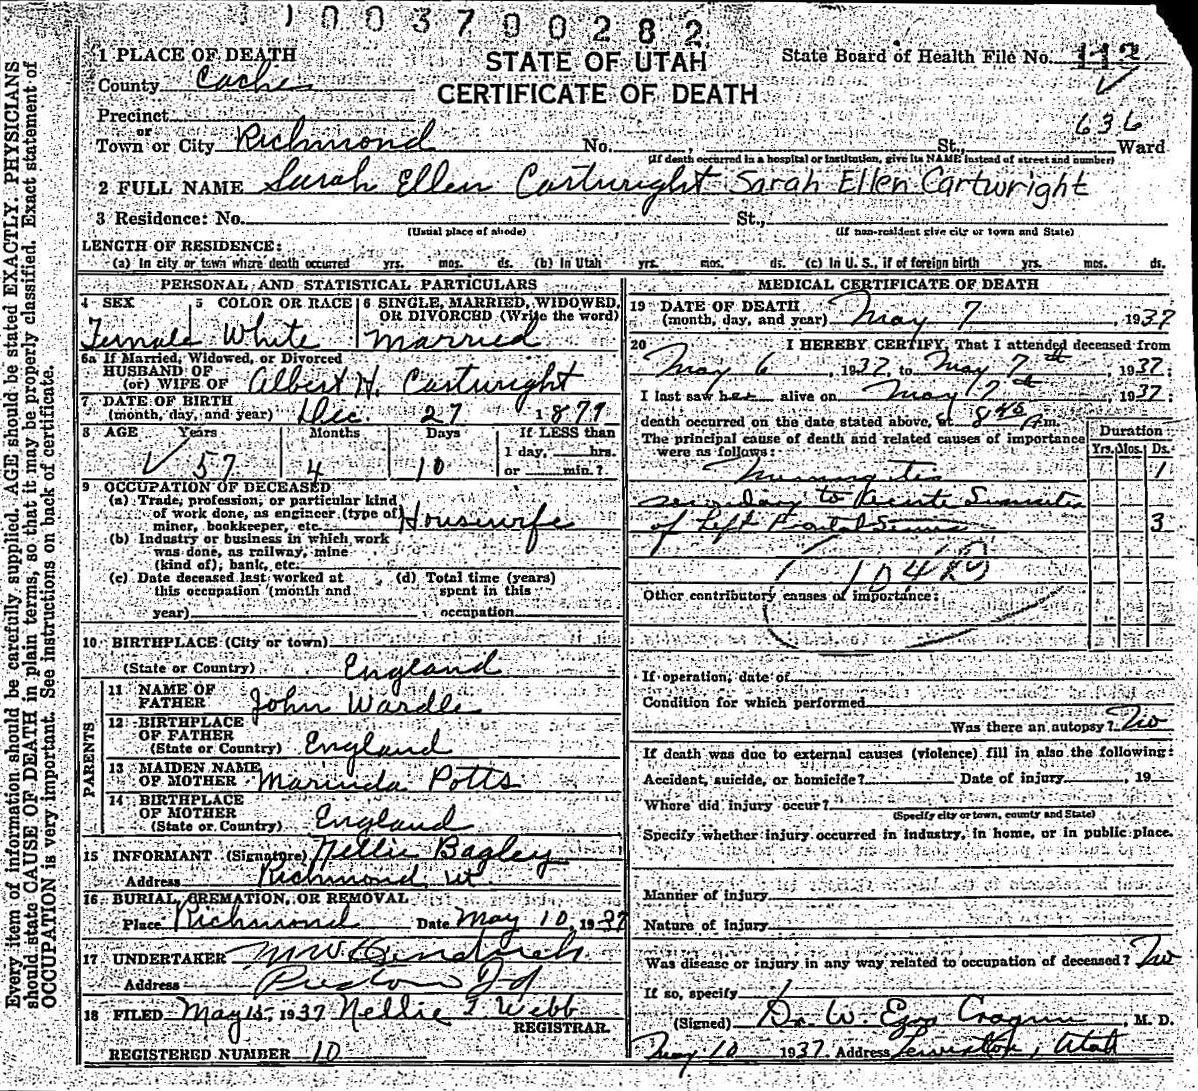 1003790282
1 PLACE OF DEATH
STATE OF UTAH
State Board of Health File No. 112
County Cache
CERTIFICATE OF DEATH
Precinct
or
636
Town or City Richmond No. , St., Ward
(If death occurred in a hospital or institution, give its NAME instead of street and number)
2 FULL NAME Sarah Ellen Cartwright Sarah Ellen Cartwright
3 Residence: No. St.,
(Usual place of abode) (If non-resident give city or town and State)
LENGTH OF RESIDENCE:
(a) In city or town where death occurred yrs. mos. ds. (b) In Utah yrs. mos. ds. (c) In U. S., if of foreign birth yrs. mos. ds.
PERSONAL AND STATISTICAL PARTICULARS
4 SEX 5 COLOR OR RACE 6 SINGLE, MARRIED, WIDOWED,
OR DIVORCED (Write the word)
Female White Married
6a If Married, Widowed, or Divorced
HUSBAND OF
(or) WIFE OF Albert H. Cartwright
7 DATE OF BIRTH
(month, day, and year) Dec. 27 1879
8 AGE Years Months Days If LESS than
1 day, hrs.
57 4 10 or min.?
9 OCCUPATION OF DECEASED
(a) Trade, profession, or particular kind
of work done, as engineer (type of)
miner, bookkeeper, etc. Housewife
(b) Industry or business in which work
was done, as railway, mine
(kind of); bank, etc.
(c) Date deceased last worked at (d) Total time (years)
this occupation (month and spent in this
year) occupation
10 BIRTHPLACE (City or town)
(State or Country) England
PARENTS
11 NAME OF
FATHER John Wardle
12 BIRTHPLACE
OF FATHER
(State or Country) England
13 MAIDEN NAME
OF MOTHER Marinda Potts
14 BIRTHPLACE
OF MOTHER
(State or Country) England
15 INFORMANT (Signature) Nellie Bagley
Address Richmond, Ut.
16 BURIAL, CREMATION, OR REMOVAL
Place Richmond Date May 10, 1937
17 UNDERTAKER
Address Preston Id
18 FILED May 15, 1937 Nellie T. Webb
REGISTRAR.
REGISTERED NUMBER 10
MEDICAL CERTIFICATE OF DEATH
19 DATE OF DEATH
(month, day, and year) May 7, 1937
20 I HEREBY CERTIFY, That I attended deceased from
May 6, 1937, to May 7th, 1937:
I last saw her alive on May 7th, 1937:
death occurred on the date stated above, at 8 45 m.
The principal cause of death and related causes of importance
were as follows:
Duration
Yrs. Mos. Ds.
Meningites 1
secondary to Acute Sinusites
of Left Frontal Sinus 3
104
Other contributory causes of importance:
If operation, date of
Condition for which performed
Was there an autopsy? No
If death was due to external causes (violence) fill in also the following:
Accident, suicide, or homicide? Date of injury , 19
Where did injury occur?
(Specify city or town, county and State)
Specify whether injury occurred in industry, in home, or in public place.
Manner of injury
Nature of injury
Was disease or injury in any way related to occupation of deceased? No
If so, specify
(Signed) Dr. W. Ezra Cragun, M. D.
May 10 1937 Address Lewiston, Utah
Every item of information should be carefully supplied. AGE should be stated EXACTLY. PHYSICIANS
should state CAUSE OF DEATH in plain terms, so that it may be properly classified. Exact statement of
OCCUPATION is very important. See instructions on back of certificate.